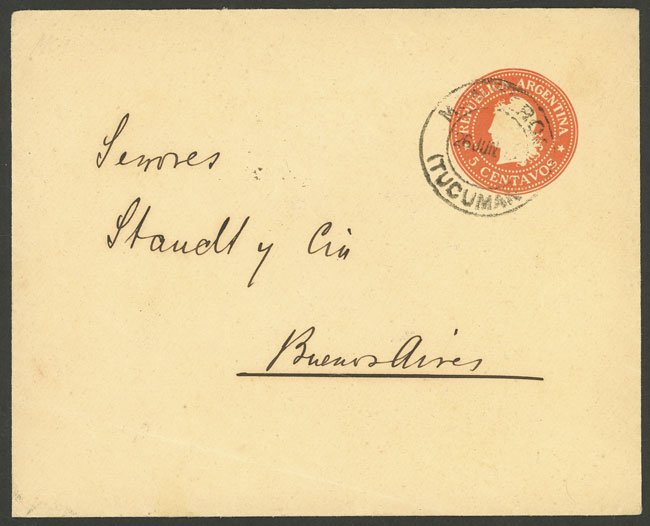 REPUBLICA ARGENTINA
5 CENTAVOS
6 JUN
(TUCUMAN
Senores
Standt y Cia
Buenos Aires